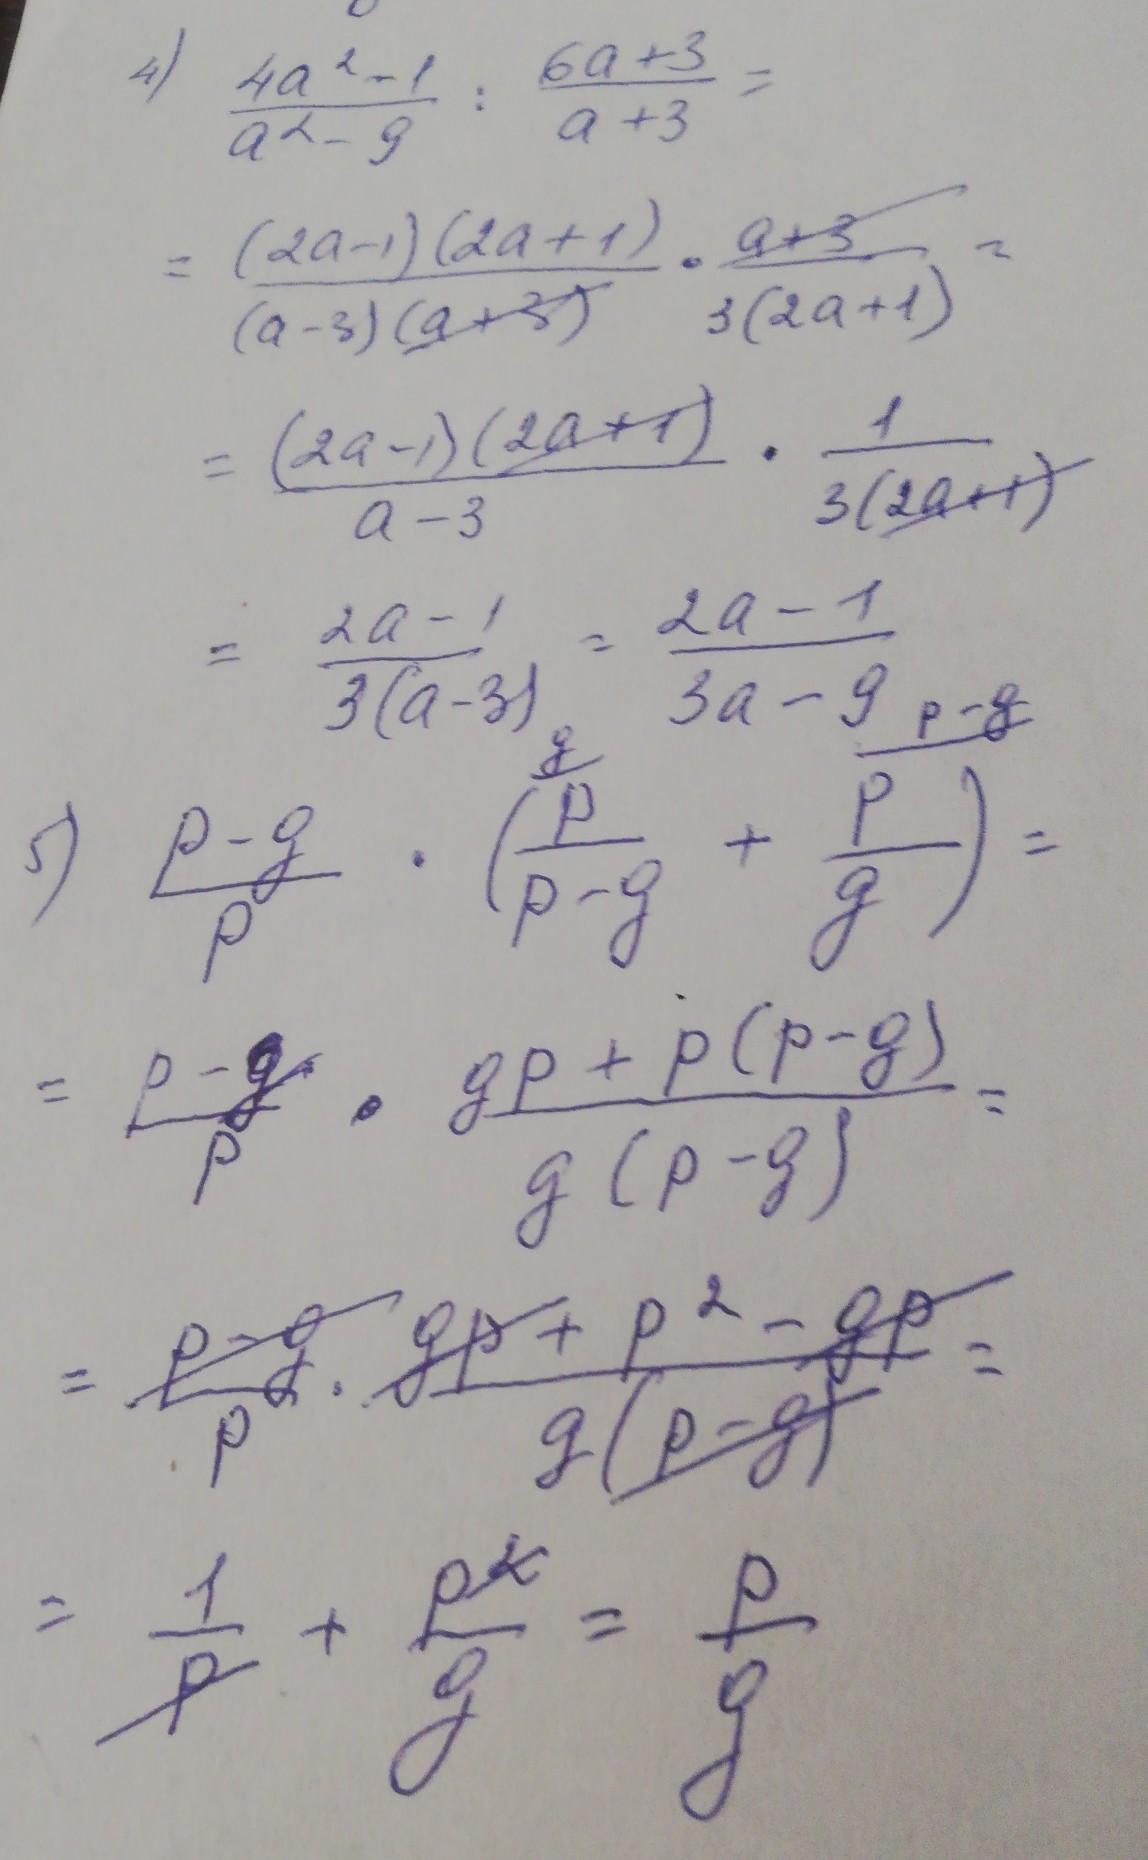 4) (4a²-1)/(a²-9) : (6a+3)/(a+3) =
= ((2a-1)(2a+1))/((a-3)(a+3)) · (a+3)/(3(2a+1)) =
= ((2a-1)(2a+1))/(a-3) · 1/(3(2a+1))
= (2a-1)/(3(a-3)) = (2a-1)/(3a-9)
g p-g
5) (p-g)/p · (p/(p-g) + p/g) =
= (p-g)/p · (gp+p(p-g))/(g(p-g)) =
= (p-g)/p · (gp+p²-gp)/(g(p-g)) =
= 1/p + p²/g = p/g